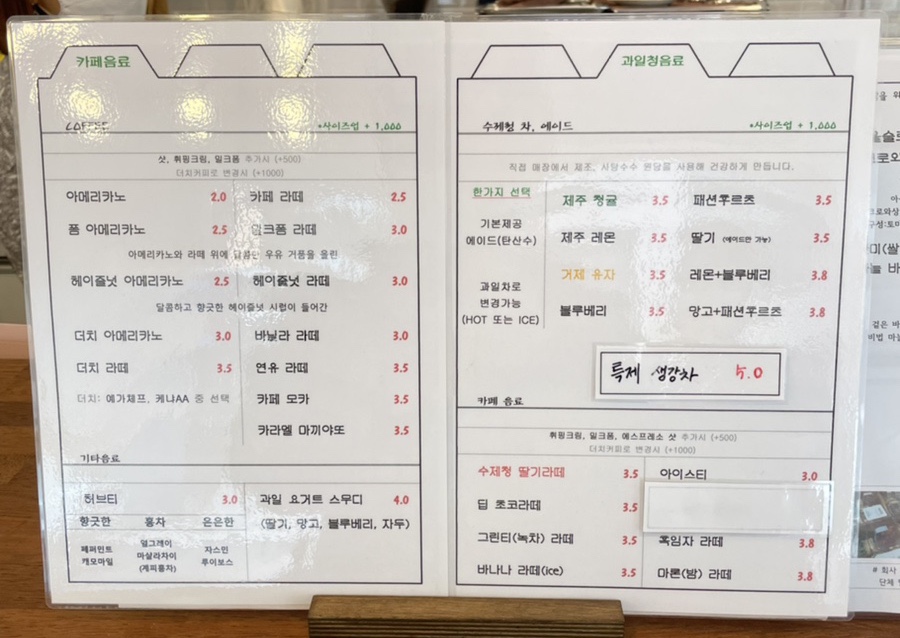 카페음료
COFFEE *사이즈업 + 1,000
샷, 휘핑크림, 밀크폼 추가시 (+500)
더치커피로 변경시 (+1000)
아메리카노 2.0 카페 라떼 2.5
폼 아메리카노 2.5 밀크폼 라떼 3.0
아메리카노와 라떼 위에 달콤한 우유 거품을 올린
헤이즐넛 아메리카노 2.5 헤이즐넛 라떼 3.0
달콤하고 향긋한 헤이즐넛 시럽이 들어간
더치 아메리카노 3.0 바닐라 라떼 3.0
더치 라떼 3.5 연유 라떼 3.5
더치: 예가체프, 케냐AA 중 선택 카페 모카 3.5
카라멜 마끼야또 3.5
기타음료
허브티 3.0 과일 요거트 스무디 4.0
향긋한 홍차 은은한 (딸기, 망고, 블루베리, 자두)
페퍼민트 얼그레이 자스민
캐모마일 마살라차이 루이보스
(계피홍차)
과일청음료
수제청 차, 에이드 *사이즈업 + 1,000
직접 매장에서 제조, 사탕수수 원당을 사용해 건강하게 만듭니다.
한가지 선택 제주 청귤 3.5 패션후르츠 3.5
기본제공
에이드(탄산수) 제주 레몬 3.5 딸기 (에이드만 가능) 3.5
거제 유자 3.5 레몬+블루베리 3.8
과일차로
변경가능 블루베리 3.5 망고+패션후르츠 3.8
(HOT 또는 ICE)
특제 생강차 5.0
카페 음료
휘핑크림, 밀크폼, 에스프레소 샷 추가시 (+500)
더치커피로 변경시 (+1000)
수제청 딸기라떼 3.5 아이스티 3.0
딥 초코라떼 3.5
그린티(녹차) 라떼 3.5 흑임자 라떼 3.8
바나나 라떼(ice) 3.5 마론(밤) 라떼 3.8
# 회사